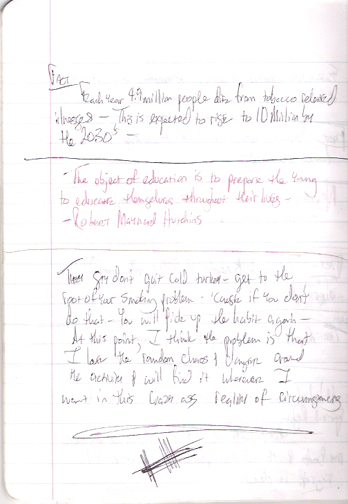 FACT
Each year 4.9 million people die from tobacco related
illnesses — This is expected to rise to 10 Million by
the 2030's —
- The object of education is to prepare the young
to educate themselves throughout their lives -
- Robert Maynard Hutchins
They say don't quit cold turkey - get to the
root of your smoking problem - 'Cause if you don't
do that - You will pick up the habit again -
At this point, I think the problem is that
I love the random chaos & danger around
the & will find it wherever I
want in this Crazy ass of circumstances